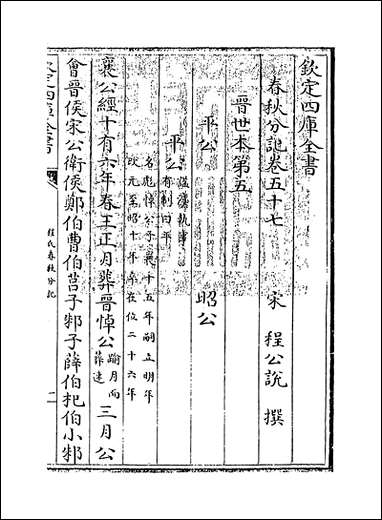 欽定四庫全書
春秋分記卷五十七
宋 程公說 撰
晉世本第五
平公 昭公
平公
名彪悼公子襄十五年嗣立明年
改元至昭十年卒在位二十六年
襄公經十有六年春王正月葬晉悼公踰月而葬速三月公
會晉侯宋公衛侯鄭伯曹伯莒子邾子薛伯杞伯小邾
程氏春秋分記